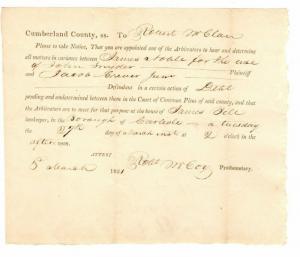 Cumberland County, ss. To Robert McClan
Please to take Notice, That you are appointed one of the Arbitrators to hear and determine
all matters in variance between James Noble for the use
of John Snyder Plaintiff
and Jacob Crever Junr
Defendant in a certain action of Debt
pending and undetermined between them in the Court of Common Pleas of said county, and that
the Arbitrators are to meet for that purpose at the house of James Bell
innkeeper, in the Borough of Carlisle on tuesday
the 27th day of March inst at 2 o'clock in the
after noon.
ATTEST
5 March 1821 Robt McCoy Prothonotary.